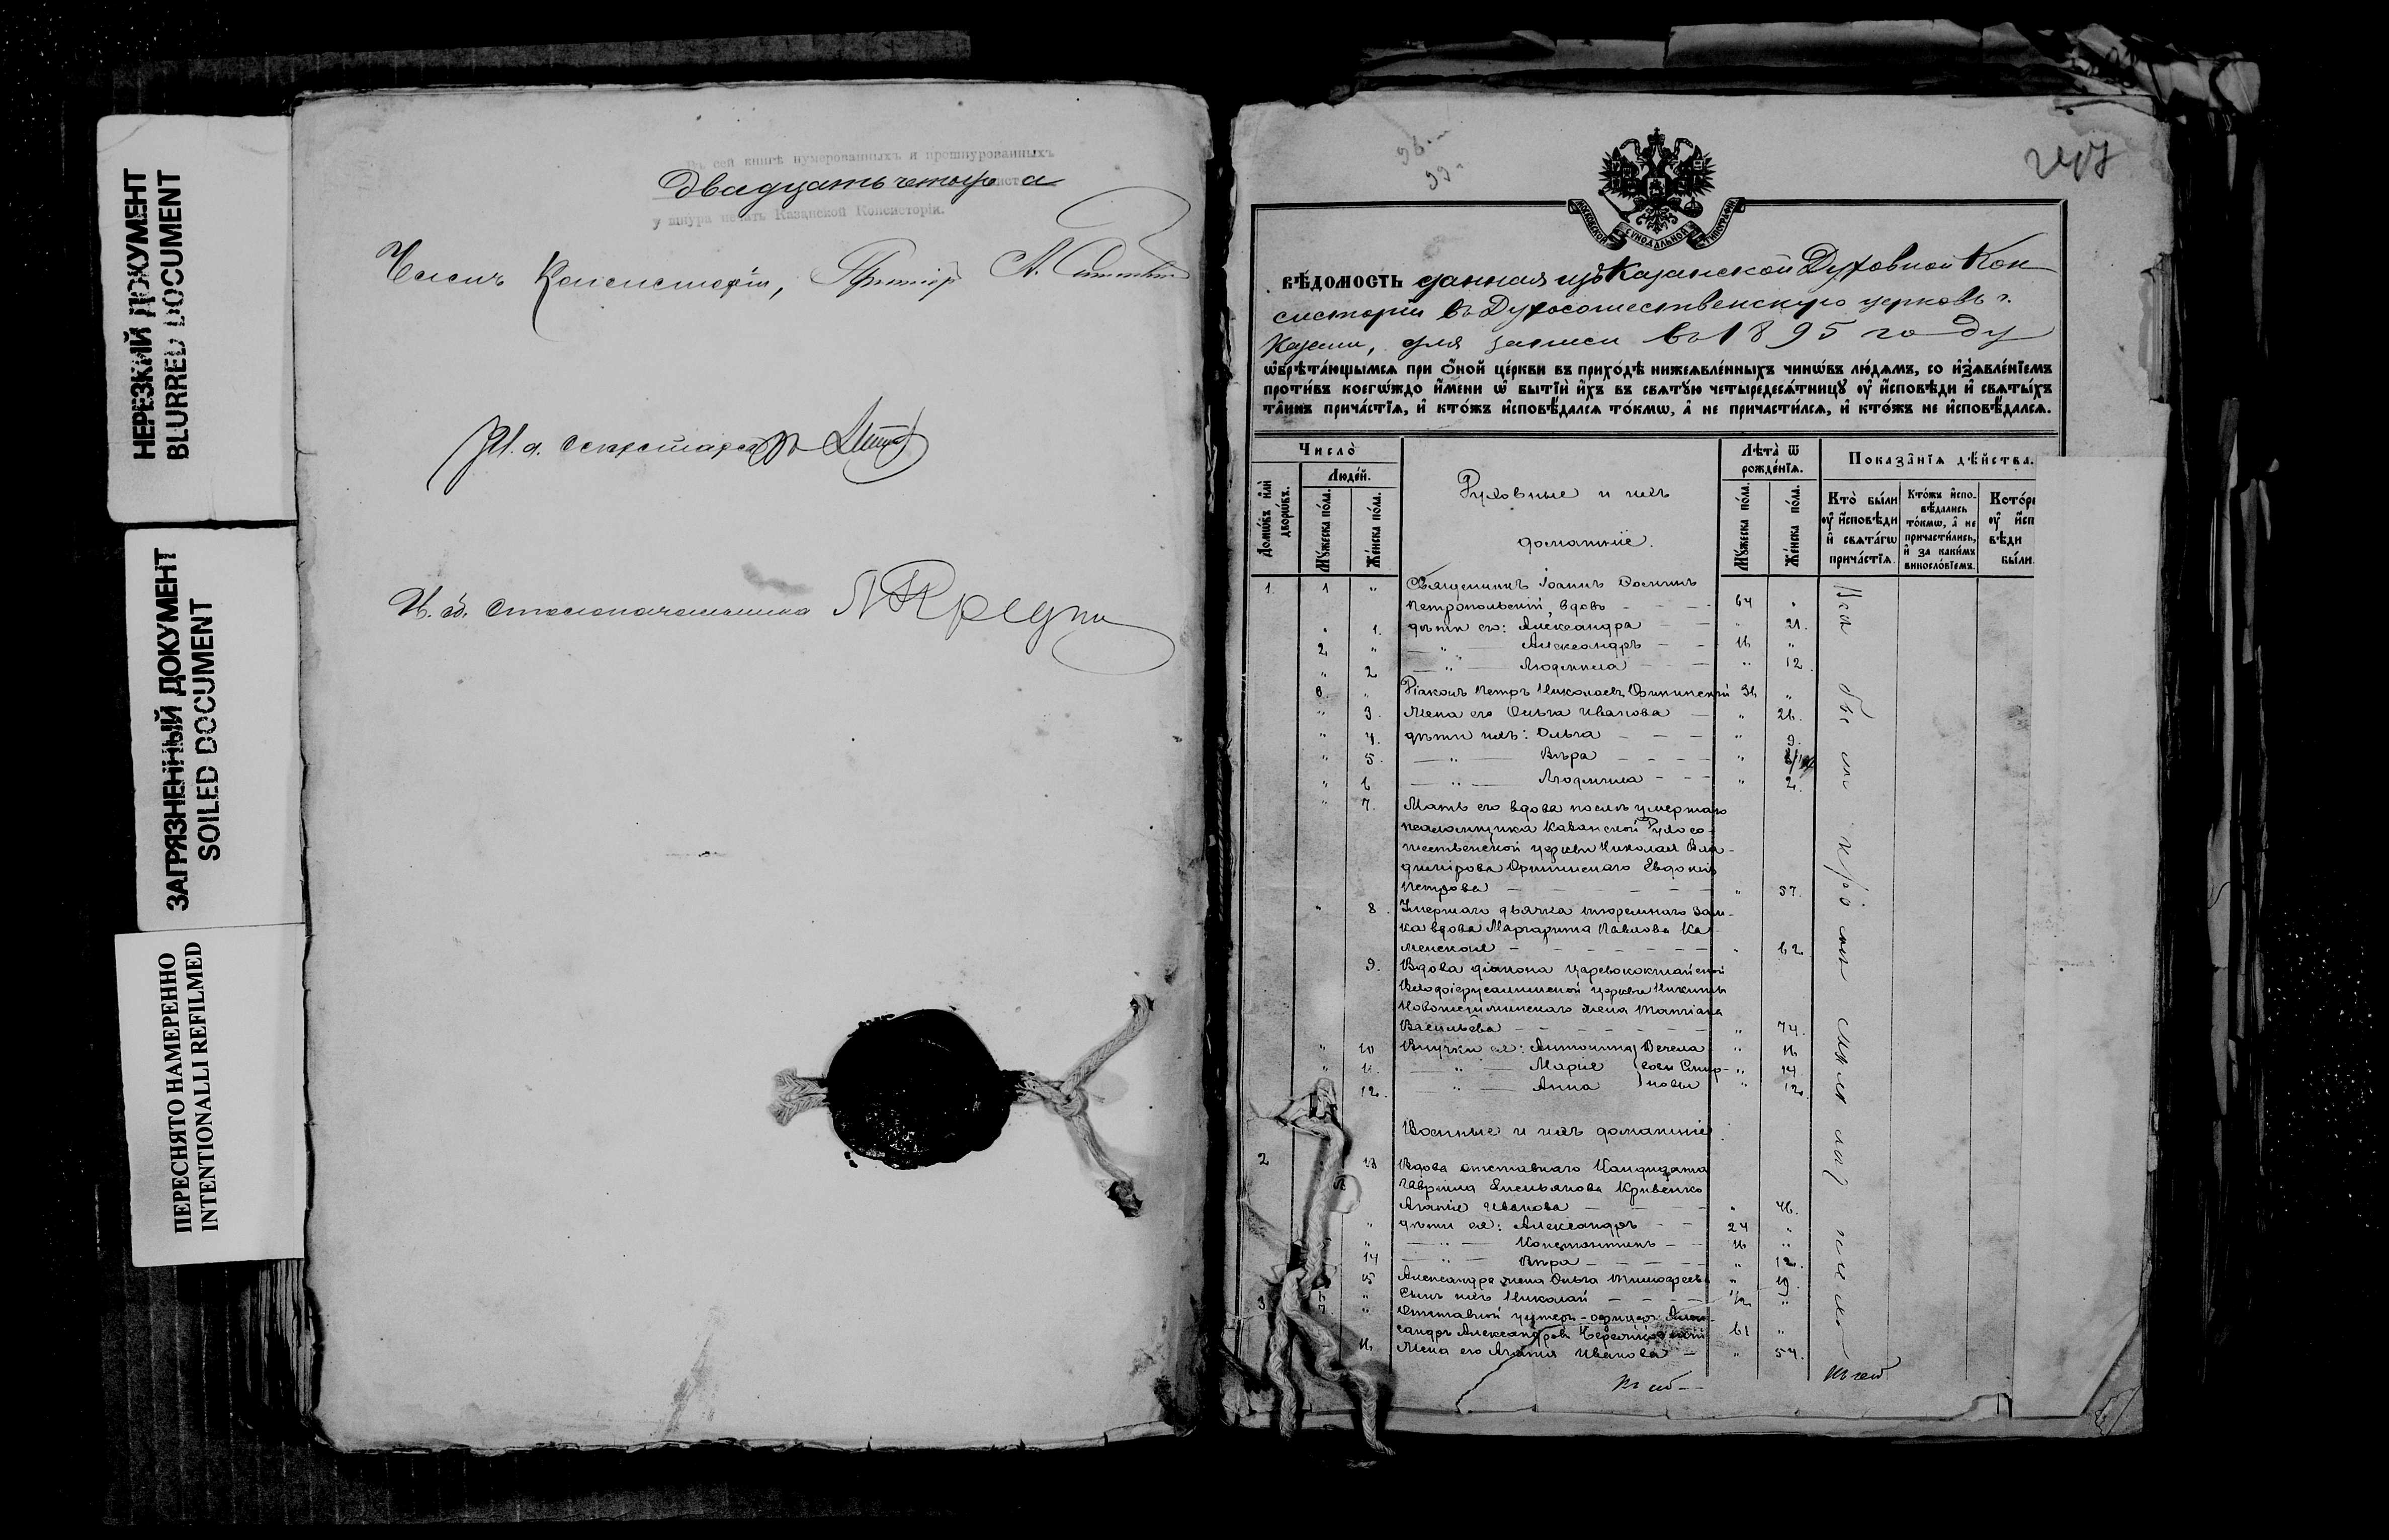 НЕРЕЗКИЙ ДОКУМЕНТ
BLURRED DOCUMENT
ЗАГРЯЗНЕННЫЙ ДОКУМЕНТ
SOILED DOCUMENT
ПЕРЕСНЯТО НАМЕРЕННО
INTENTIONALLI REFILMED
Въ сей книгѣ нумерованныхъ и прошнурованныхъ
двадцать четыре
у шнура печать Казанской Консисторіи.
Членъ Консисторіи,
И. д. Секретаря
И. об. столоначальника
МОСКОВСКОЙ СѴНОДАЛЬНОЙ ТИПОГРАФІИ
ВѢДОМОСТЬ данная изъ Казанской Духовной Кон
систоріи въ Духосошественскую церковь г.
Казани, для записи въ 1895 году
ѡ҆брѣта́ющымсѧ при ѻ҆́ной це́ркви въ прихо́дѣ нижеѧвле́нныхъ чинѡ́въ лю́дѧмъ, со и҆з̾ѧвле́нїемъ
проти́въ коегѡ́ждо и҆́мени ѡ҆ бытїѝ и҆́хъ въ свѧтꙋ́ю четыредесѧ́тницꙋ ᲂу҆ и҆́сповѣди и҆ свѧты́хъ
та̑инъ прича́стїѧ, и҆ кто́жъ и҆сповѣ́далсѧ то́кмѡ, а҆ не причасти́лсѧ, и҆ кто́жъ не и҆сповѣ́далсѧ.
Число̀
Домѡ́въ и҆лѝ дворѡ́въ.
Люде́й.
Мꙋ́жеска по́ла.
Же́нска по́ла.
Духовные и ихъ
домашніе.
Лѣ́та ѿ рожде́нїѧ.
Мꙋ́жеска по́ла.
Же́нска по́ла.
Показа̑нїѧ дѣ́йства.
Кто̀ бы́ли ᲂу҆ и҆́сповѣди и҆ свѧта́гѡ прича́стїѧ.
Кто́жъ и҆спо­вѣ́дались то́кмѡ, а҆ не причасти́лись, и҆ за каки́мъ виносло́вїемъ.
1. 1 " Священникъ Іоаннъ
Петропольскій, вдовъ 64 "
" 1. дѣти его: Александра " 21.
2 " Александръ 16 "
" 2 Людмила " 12.
3. " Діаконъ Петръ Николаевъ 36 "
" 3. Жена его Ольга Иванова " 26.
" 4. дѣти ихъ: Ольга " 9.
" 5. Вѣра "
" 6 Людмила " 2.
" 7. Мать его вдова послѣ умершаго
псаломщика Казанской Духосо-
шественской церкви Николая Вла-
димірова Евдокія
Петрова " 57.
" 8. Умершаго дьячка тюремнаго зам-
ка вдова Маргарита Павлова Ка-
менская " 62
9. Вдова діакона Царевококшайской
Входоіерусалимской церкви Никиты
жена Татіана
Васильева " 74.
" 10 Внучки ея: Антонина " 16
" 11. Марія " 14
12. Анна " 12.
Военные и ихъ домашніе.
2 13 Вдова отставнаго Кандидата
Гавріила Емельянова Кривенко
Агапія Иванова " 46.
" дѣти ея: Александръ 24 "
" Константинъ 16 "
14 Вѣра " 12.
15 Александра жена Ольга Тимофеева " 19.
" Сынъ ихъ Николай "
3 " Отставной унтеръ-офицеръ Алек-
сандръ Александровъ 61 "
16 Жена его Агапія Иванова " 54.